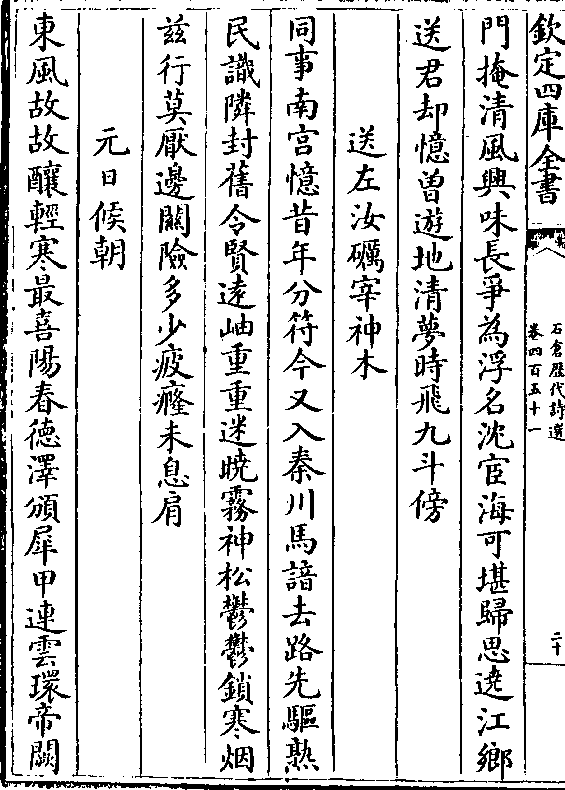 欽定四庫全書
石倉歴代詩選
卷四百五十一
二十
門掩清風興味長爭為浮名沈宦海可堪歸思遶江鄉
送君却憶曽遊地清夢時飛九斗傍
送左汝礪宰神木
同事南宫憶昔年分符今又入秦川馬諳去路先驅熟
民識隣封舊令賢逺岫重重迷曉霧神松鬱鬱鎖寒烟
兹行莫厭邊關險多少疲癃未息肩
元日候朝
東風故故釀輕寒最喜陽春德澤頒犀甲連雲環帝闕